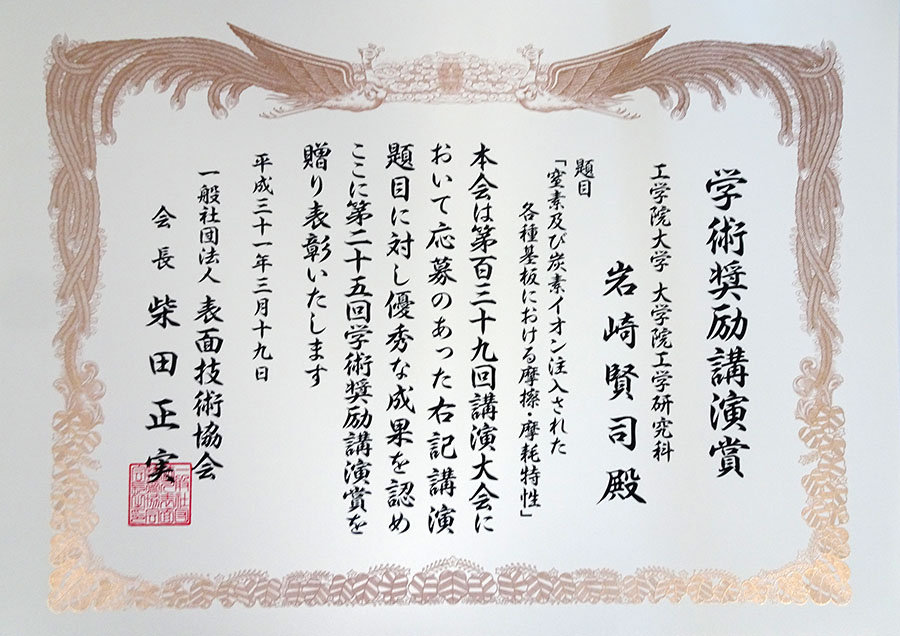 学術奨励講演賞
工学院大学 大学院工学研究科
岩崎賢司殿
題目
「窒素及び炭素イオン注入された
各種基板における摩擦・摩耗特性」
本会は第百三十九回講演大会に
おいて応募のあった右記講演
題目に対し優秀な成果を認め
ここに第二十五回学術奨励講演賞を
贈り表彰いたします
平成三十一年三月十九日
一般社団法人 表面技術協会
会長 柴田正実